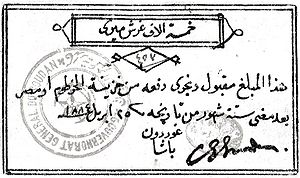 خمسة الاف غرش ميري
هذا المبلغ مقبول ويجرى دفعه من خزينة الخرطوم او مصر
بعد مضى ستة شهور من تاريخه ٢٥ ابريل ١٨٨٤
غوردون
باشا
GOUVERNORAT GENERAL DU SOUDAN